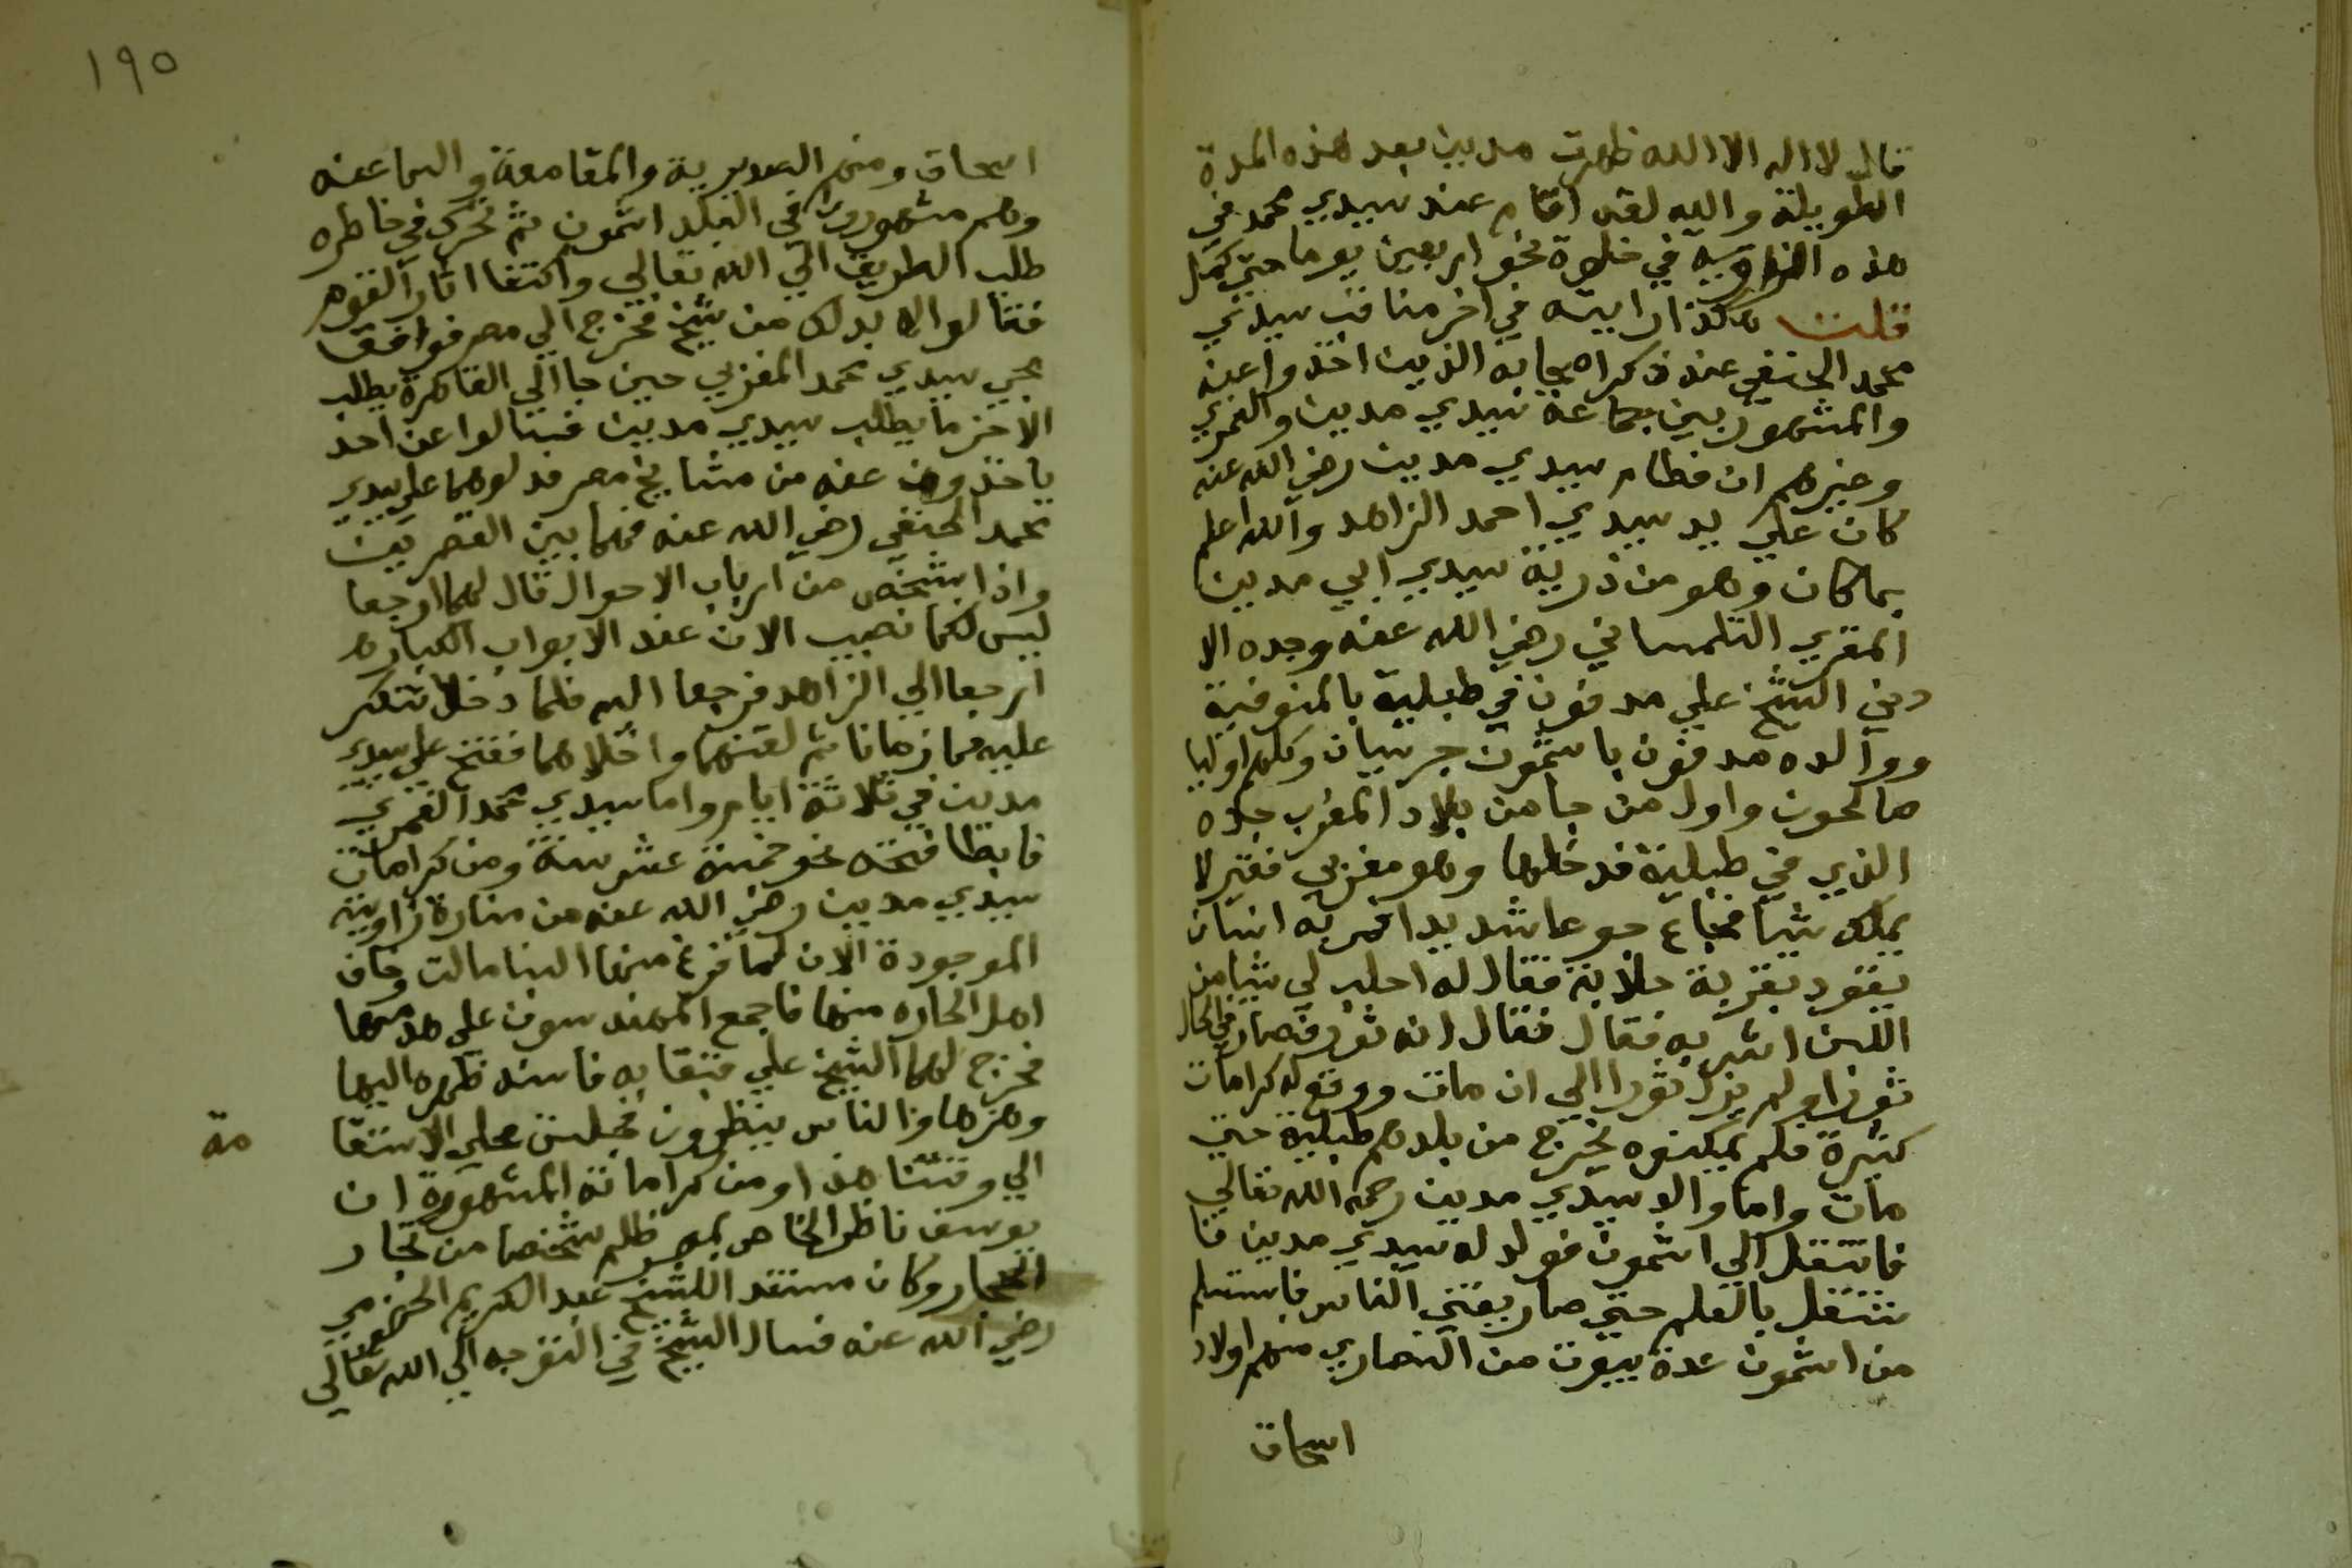 قال لا اله الا الله ظهرت مدين بعد هذه المدة
الطويلة والله لقد اقام عند سيدي محمد في
هذه الزاوية في خلوة نحو اربعين يوما حتى كمل
قلت هكذا رايته في اخر مناقب سيدي
محمد الحنفي عند ذكر اصحابه الذين اخذوا عنه
والمشهور بين جماعة سيدي مدين والغمري
وغيرهم ان فطام سيدي مدين رضي الله عنه
كان علي يد سيدي احمد الزاهد والله اعلم
بما كان وهو من ذرية سيدي ابي مدين
المغربي التلمساني رضي الله عنه وجده الا
دني الشيخ علي مدفون في طبلية بالمنوفية
ووالده مدفون باشمون جريسان وكلهم اوليا
صالحون واول من جا من بلاد المغرب جده
الذي في طبلية فدخلها وهو مغربي فقير لا
يملك شيا فجاع جوعا شديدا فمر به انسان
يقود بقرة حلابة فقال له احلب لي شيا من
اللبن اشربه فقال فقال انه ثور فصار في الحال
ثورا ولم يزل ثورا الي ان مات ووقع له كرامات
كثيرة فلم يمكنوه يخرج من بلدهم طبلية حتي
مات واما والد سيدي مدين رحمه الله تعالي
فانتقل الي اشمون فولد له سيدي مدين فا
شتغل بالعلم حتي صار يفتي الناس فاستسلم
من اشمون عدة بيوت من النصاري منهم اولاد
اسحاق
١٩٥
اسحاق ومنهم الصديرية والمقامعة والسماعنه
وهم مشهورون في البلد اشمون ثم تحرك في خاطره
طلب الطريق الي الله تعالي واقتفا اثار القوم
فقالوا له لا بد لك من شيخ فخرج الي مصر فوافق
مجي سيدي محمد الغمري حين جا الي القاهرة يطلب
الاخر ما يطلب سيدي مدين فسالوا عن احد
ياخذون عنه من مشايخ مصر فدلوهما علي سيدي
محمد الحنفي رضي الله عنه فهما بين القصرين
واذا بشخص من ارباب الاحوال قال لهما ارجعا
ليس لكما نصيب الان عند الابواب الكباره
ارجعا الي الزاهد فرجعا اليه فلما دخلا تنكر
عليهما زمانا ثم لقنهما واخلاهما ففتح علي سيدي
مدين في ثلاثة ايام واما سيدي محمد الغمري
فابطا فتحه نحو خمسة عشر سنة ومن كرامات
سيدي مدين رضي الله عنه من منارة زاويته
الموجودة الان لما فرغ منها البنا مالت وخاف
اهل الحاره منها فاجمع المهندسون علي هدمها
فخرج لهما الشيخ علي قبقابه فاسند ظهره اليها
وهزها والناس ينظرون فجلس علي الاستقا
مة
الي وقتنا هذا ومن كراماته المشهورة ان
يوسف ناظر الخاص بمصر ظلم شخصا من تجار
الحجار وكان مستند الشيخ عبد الكريم الحضرمي
رضي الله عنه فسال الشيخ في التوجه الي الله تعالي